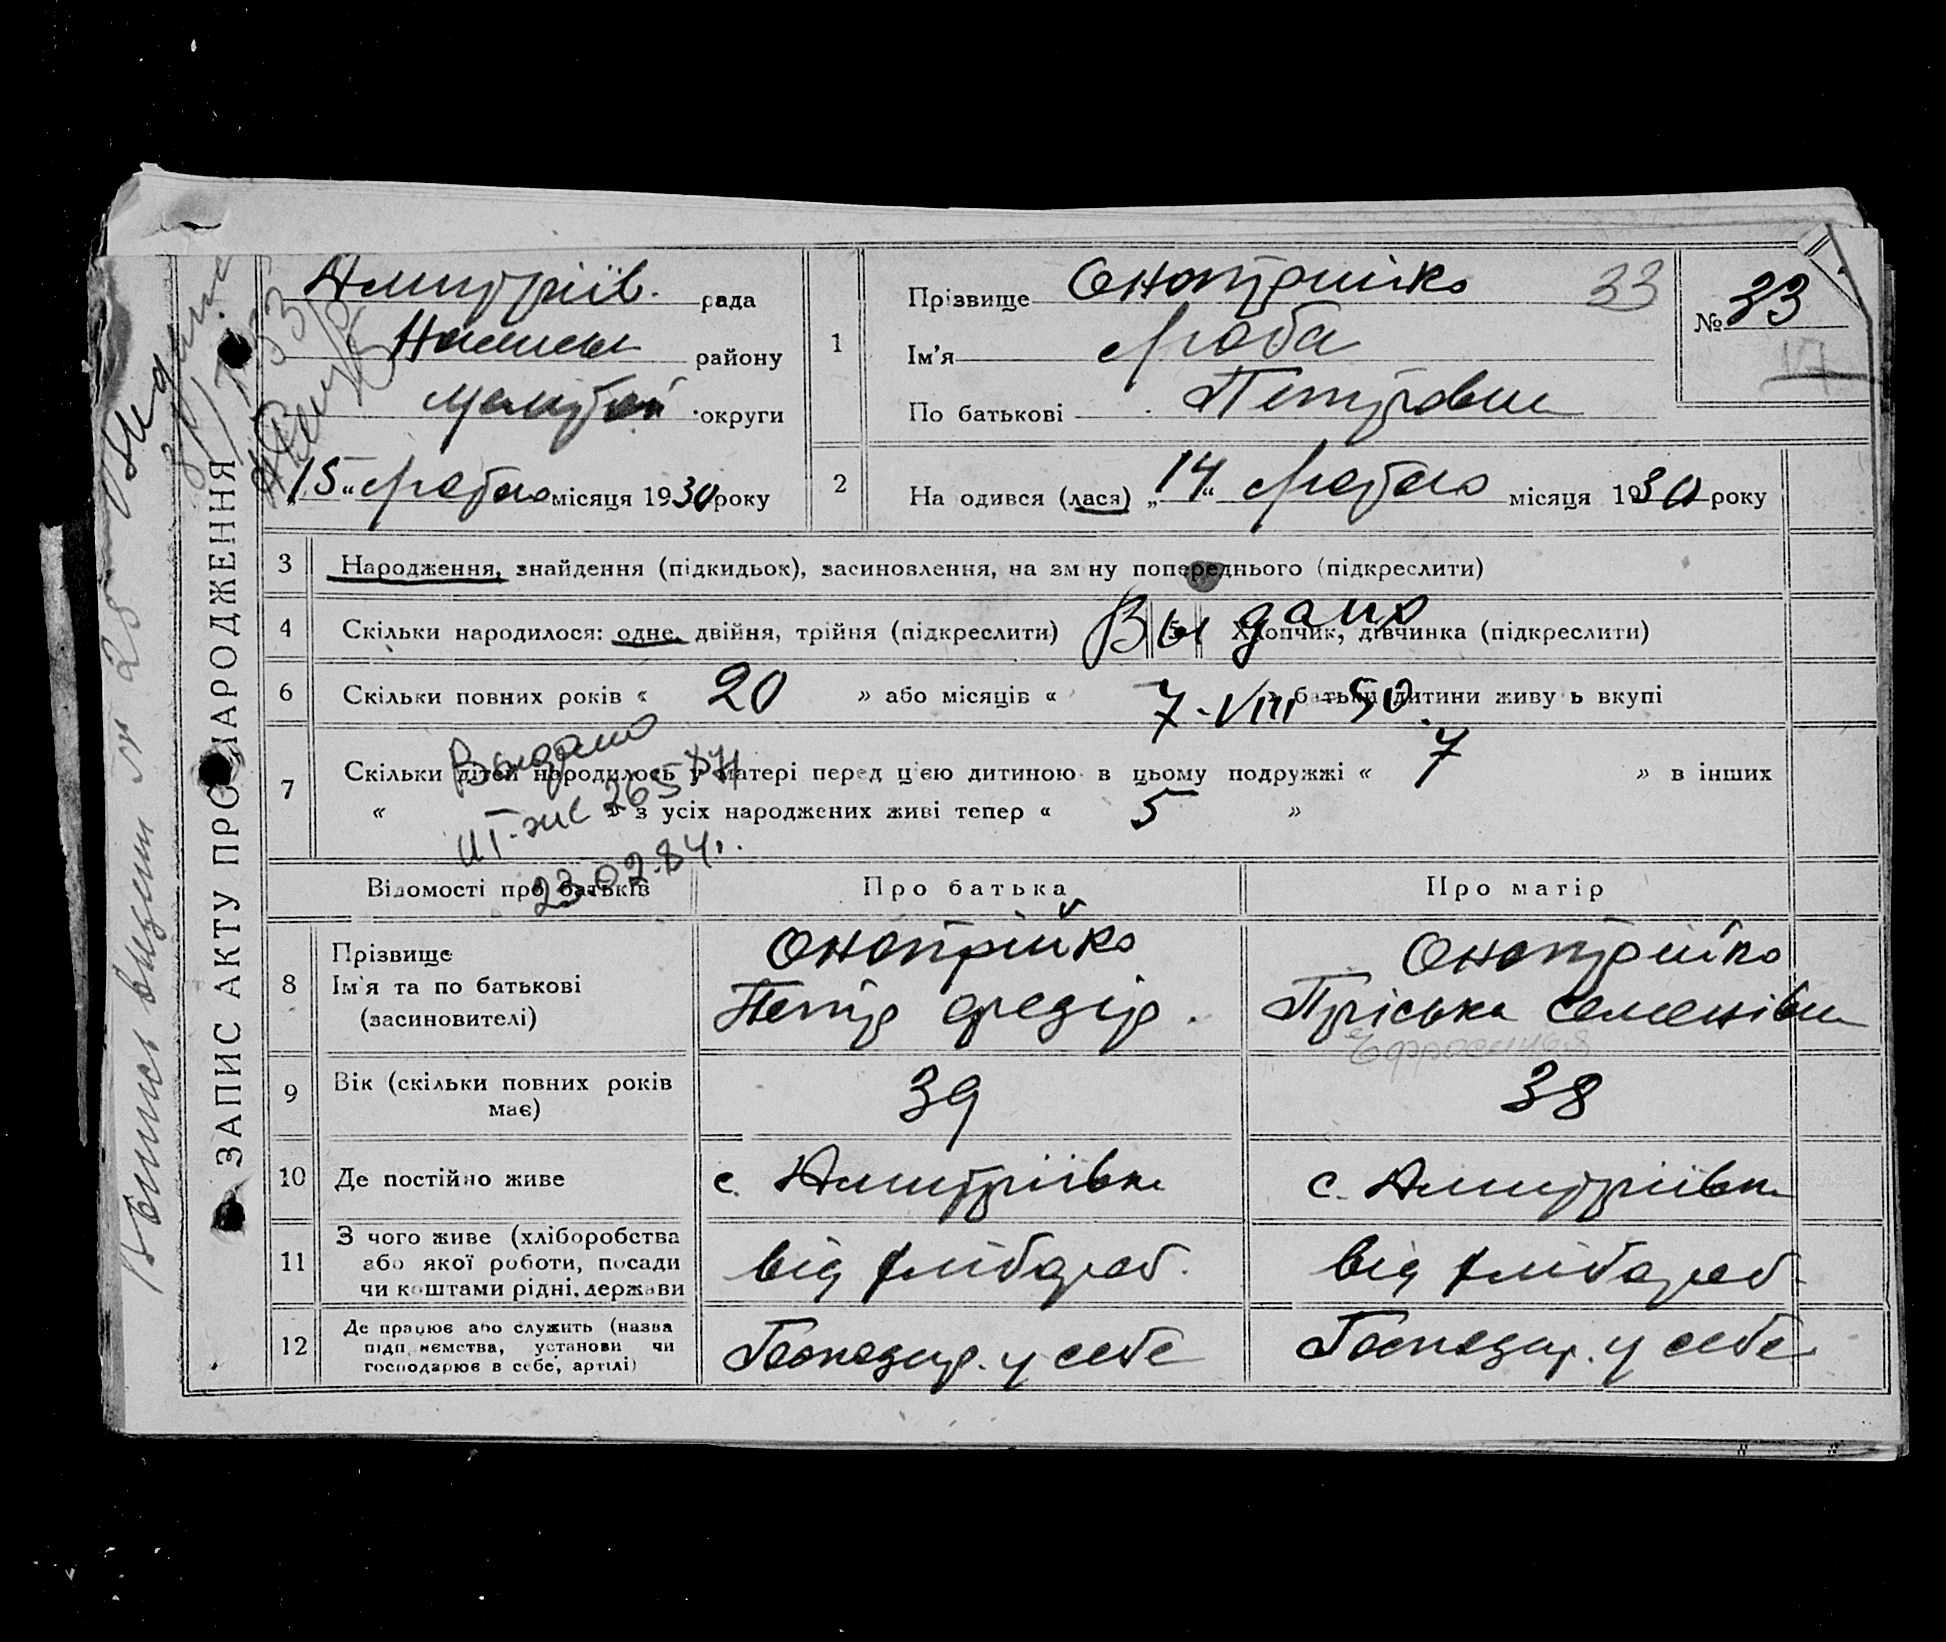 ЗАПИС АКТУ ПРО НАРОДЖЕННЯ
Дмитріїв. рада
району
округи
"15" лютого місяця 1930 року
1
Прізвище Онопрійко 33
Ім'я Люба
По батькові Петровна
№ 33
17
2
На одився (лася) „14" лютого місяця 1930 року
3 Народження, знайдення (підкидьок), засиновлення, на зм ну попереднього (підкреслити)
4 Скільки народилося: одне, двійня, трійня (підкреслити) 5 Хлопчик, дівчинка (підкреслити)
Выдано
6 Скільки повних років « 20 » або місяців « » батьки дитини живу ь вкупі
7-VIII-50.
7 Скільки дітей народилось у матері перед цією дитиною в цьому подружжі « 7 » в інших
« » з усіх народжених живі тепер « 5 »
Выдано
23.02.84г.
Відомості про батьків Про батька Про матір
8 Прізвище Онопрійко Онопрійко
Ім'я та по батькові Петро Федір. Пріська Семенівна
(засиновителі) Ефросиния
9 Вік (скільки повних років має) 39 38
10 Де постійно живе с. Дмитріівка с. Дмитріівка
11 З чого живе (хліборобства або якої роботи, посади чи коштами рідні, держави від хлібороб. від хлібороб.
12 Де працює або служить (назва підп ємства, установи чи господарює в себе, артілі) Господар. у себе Господар. у себе